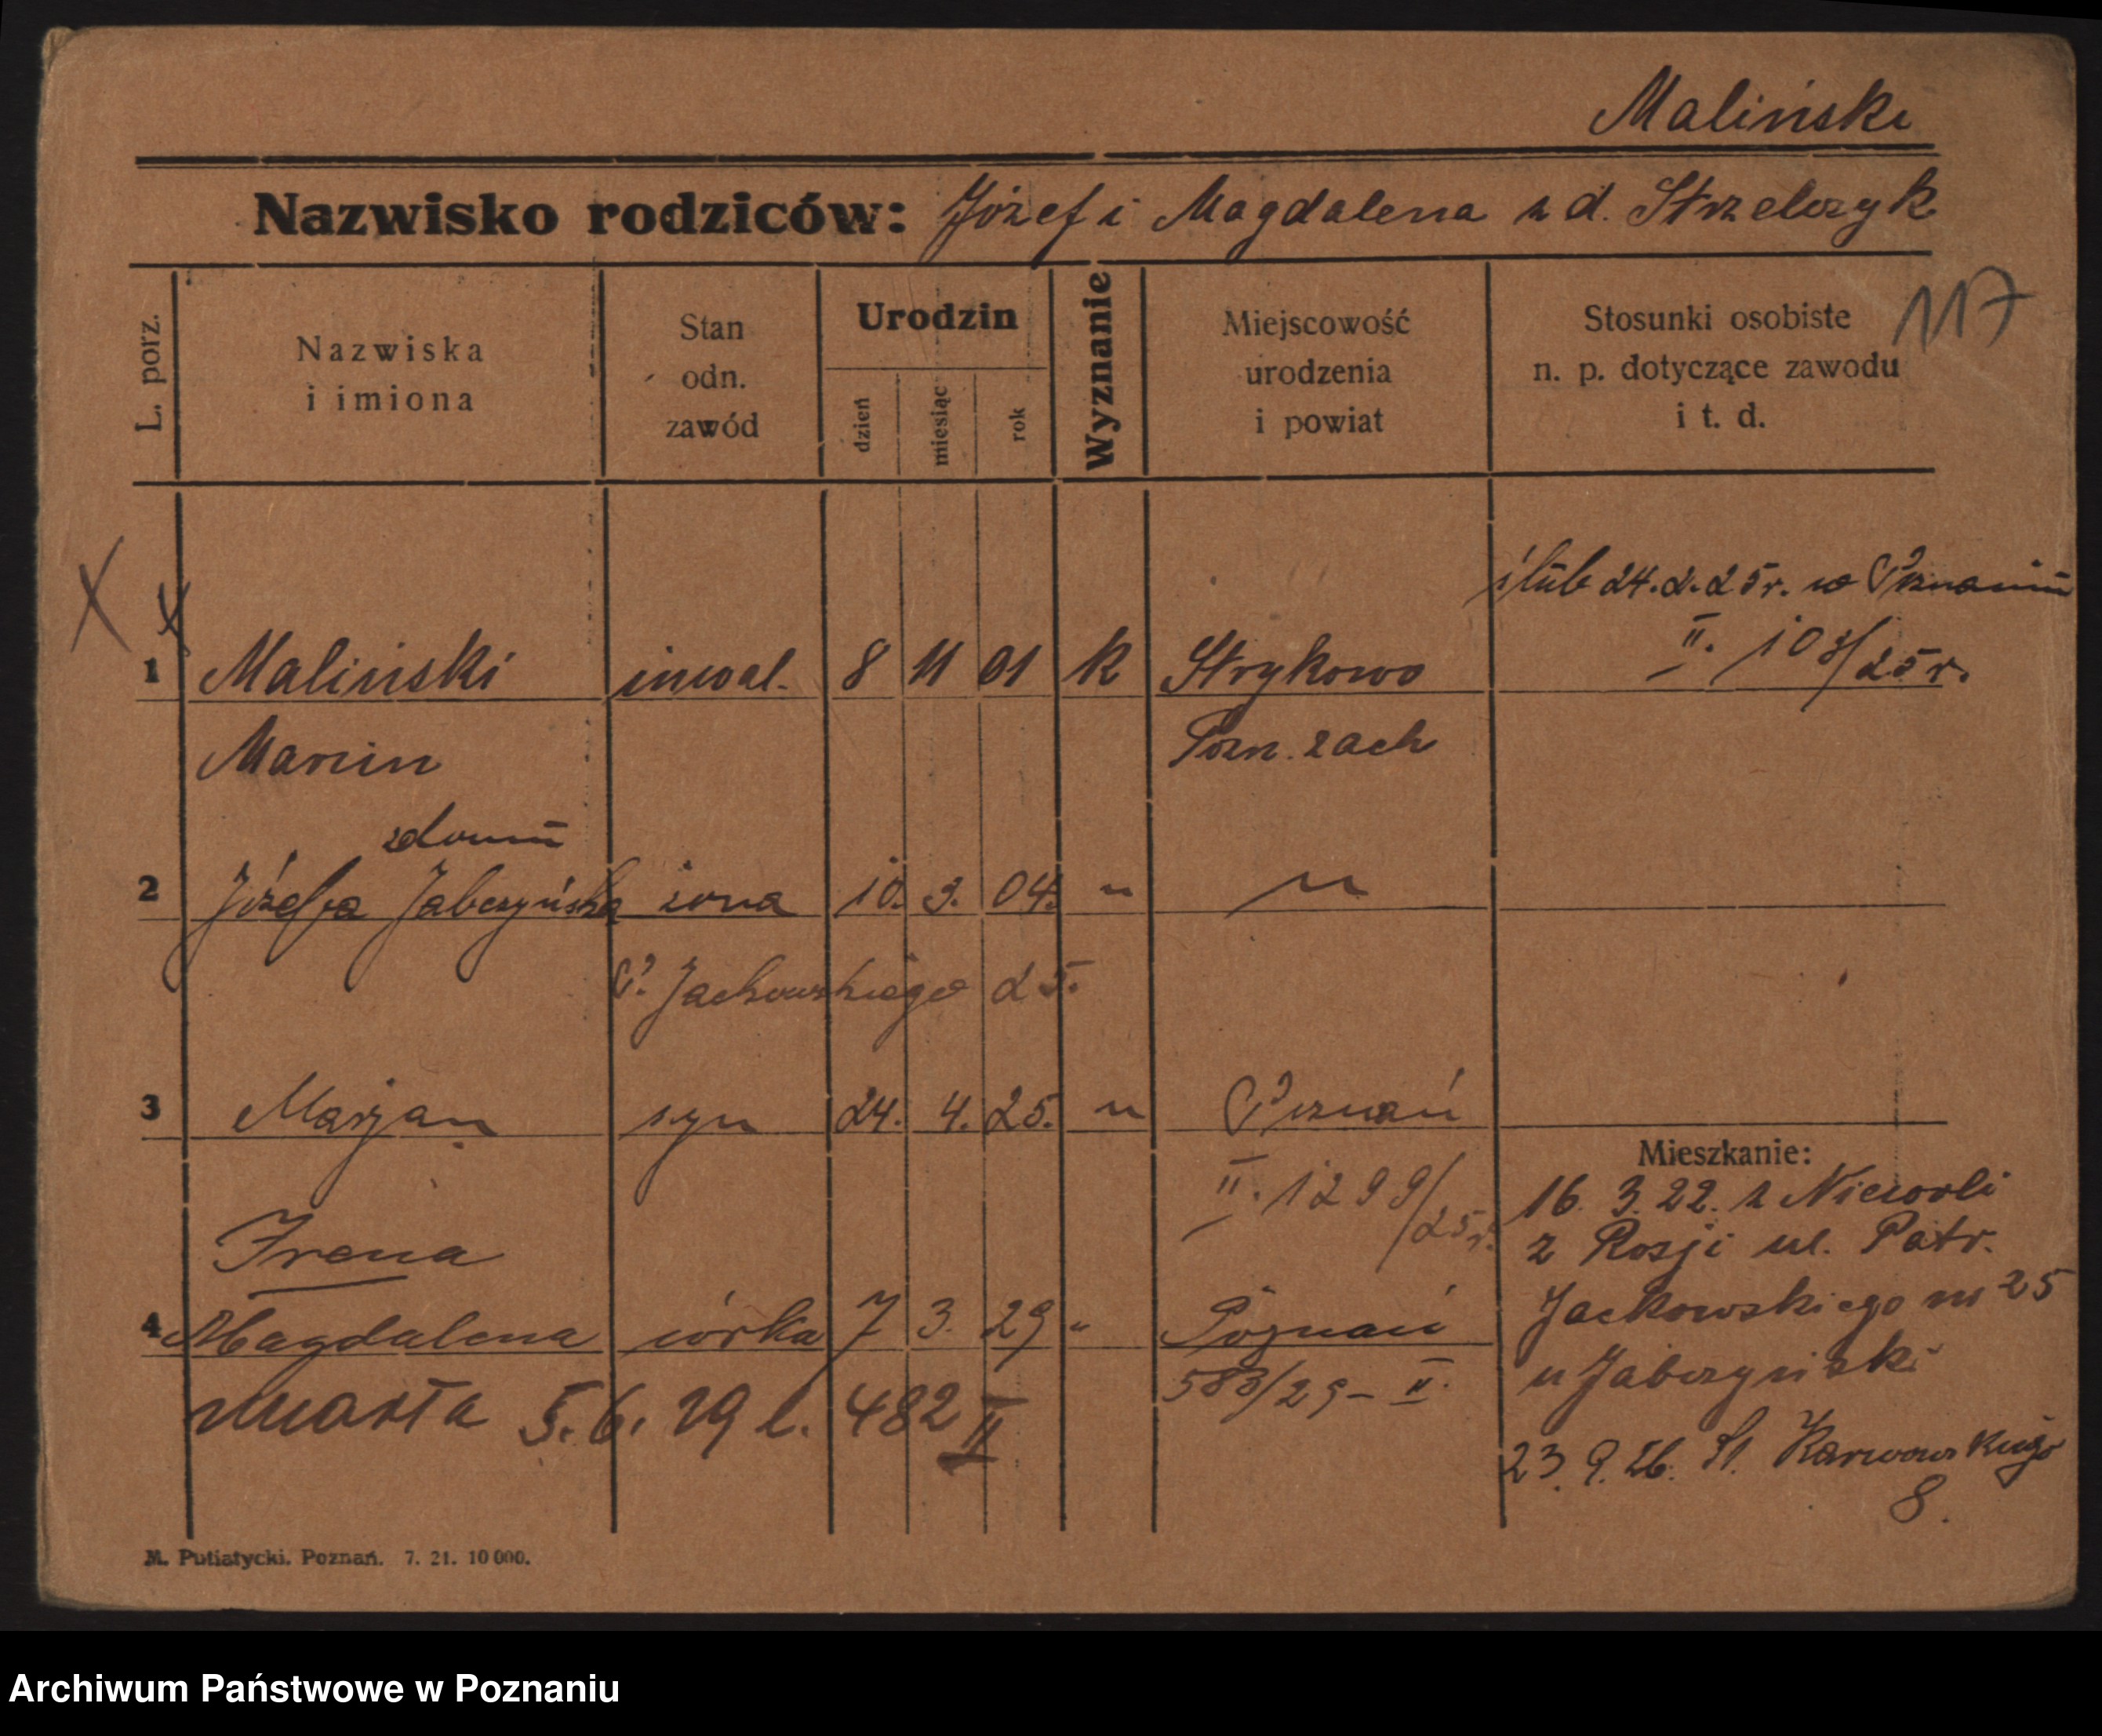 Maliński
Nazwisko rodziców: Józef i Magdalena z d. Strzelczyk
117
L. porz.
Nazwiska
i imiona
Stan
odn.
zawód
Urodzin
dzień
miesiąc
rok
Wyznanie
Miejscowość
urodzenia
i powiat
Stosunki osobiste
n. p. dotyczące zawodu
i t. d.
ślub 24.2.25r. w Poznaniu
II. 108/25r.
X X
1 Maliński inwal. 8 11 01 k Strykowo
Marcin Pozn. zach
z domu
2 Józefa Jabczyńska żona 10. 3. 04. " "
P. Jackowskiego 25.
3 Marjan syn 24. 4. 25. " Poznań
II. 1299/25r.
Irena
4 Magdalena córka 7 3. 29 " Poznań
583/29 – II.
zmarła 5.6.29 l. 482 II
Mieszkanie:
16. 3. 22. z Niewoli
z Rosji ul. Patr.
Jackowskiego nr 25
u Jabczyński
23. 9. 26. St. Karwowskiego
8.
M. Putiatycki. Poznań. 7. 21. 10 000.
Archiwum Państwowe w Poznaniu